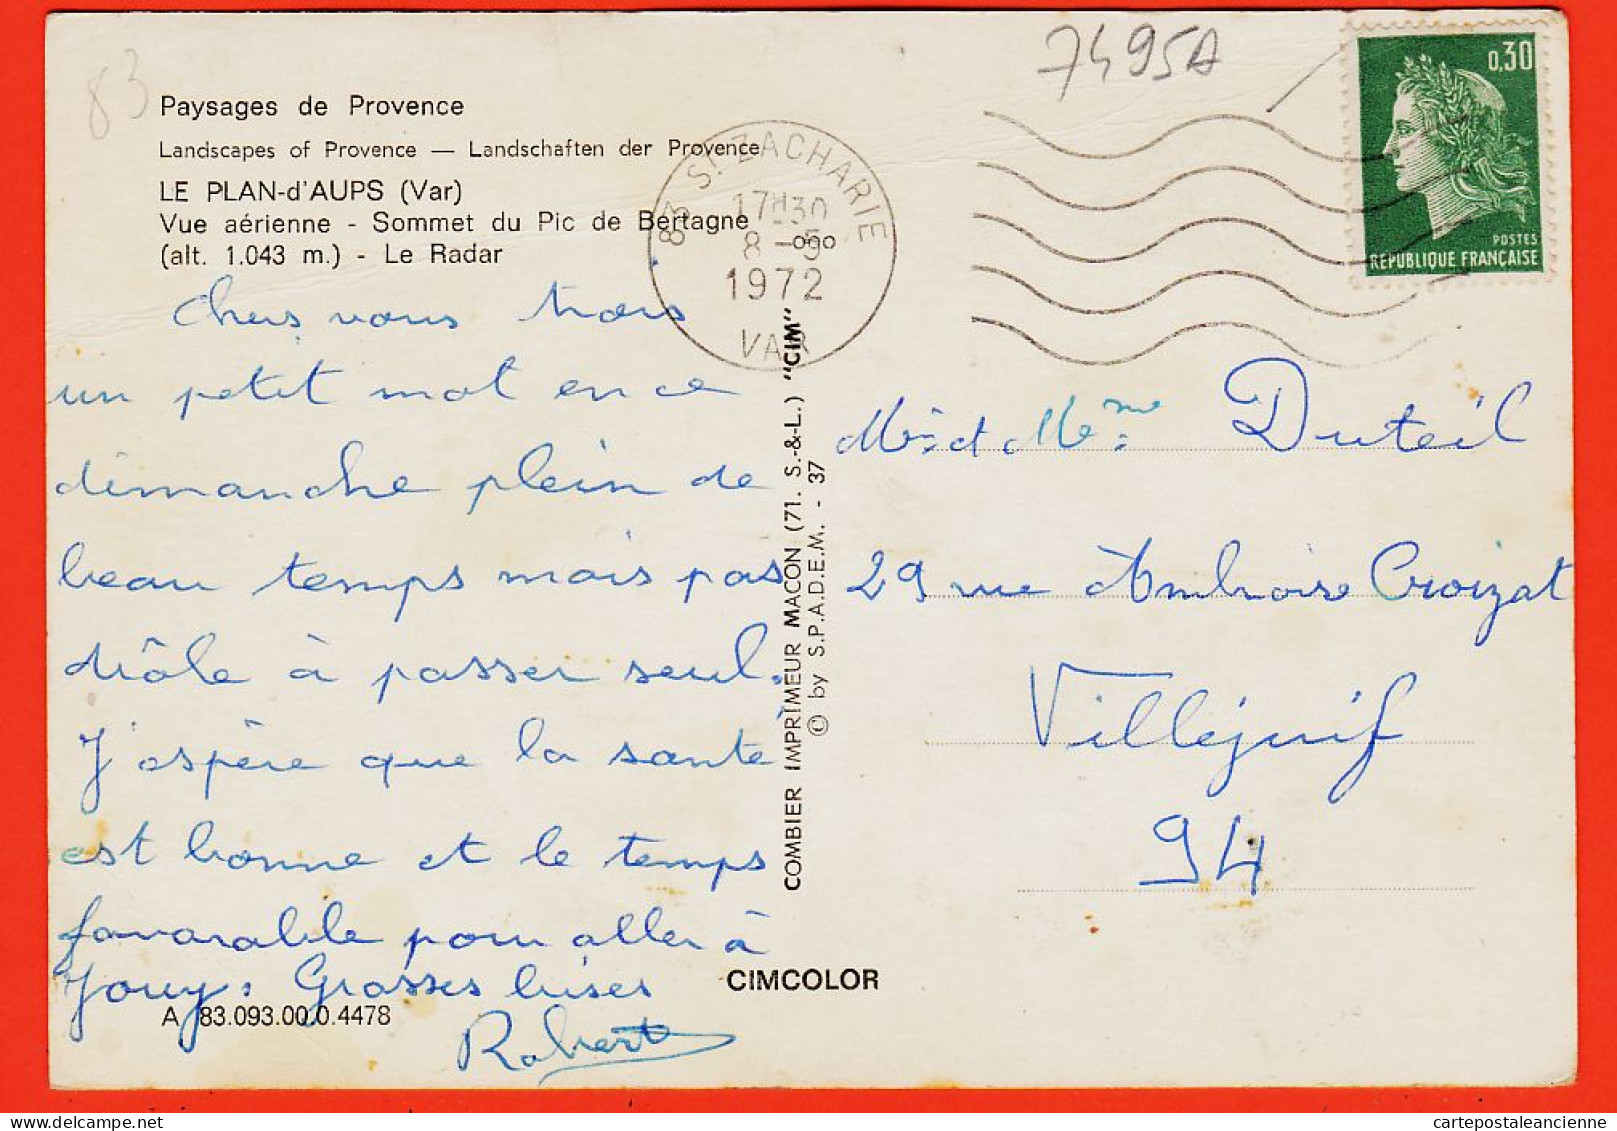 83
7495A
Paysages de Provence
Landscapes of Provence — Landschaften der Provence
LE PLAN-d'AUPS (Var)
Vue aérienne - Sommet du Pic de Bertagne
(alt. 1.043 m.) - Le Radar
83 ST ZACHARIE
17H30
8 -5
1972
VAR
0,30
POSTES
RÉPUBLIQUE FRANÇAISE
Chers vous trois
un petit mot en ce
dimanche plein de
beau temps mais pas
drôle à passer seul.
J'espère que la santé
est bonne et le temps
favorable pour aller à
Jouy. Grosses bises
Robert
A 83.093.00.0.4478
COMBIER IMPRIMEUR MACON (71. S.-&-L.) "CIM"
© by S.P.A.D.E.M. - 37
CIMCOLOR
Mr et Mme Duteil
29 rue Ambroise Croizat
Villejuif
94
cartepostaleancienne